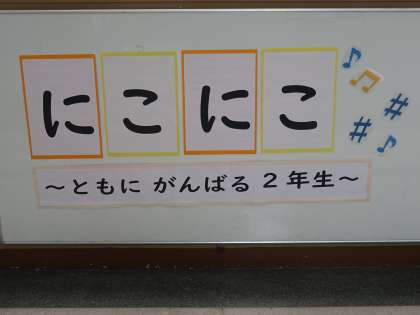 にこにこ
～ともに がんばる 2年生～